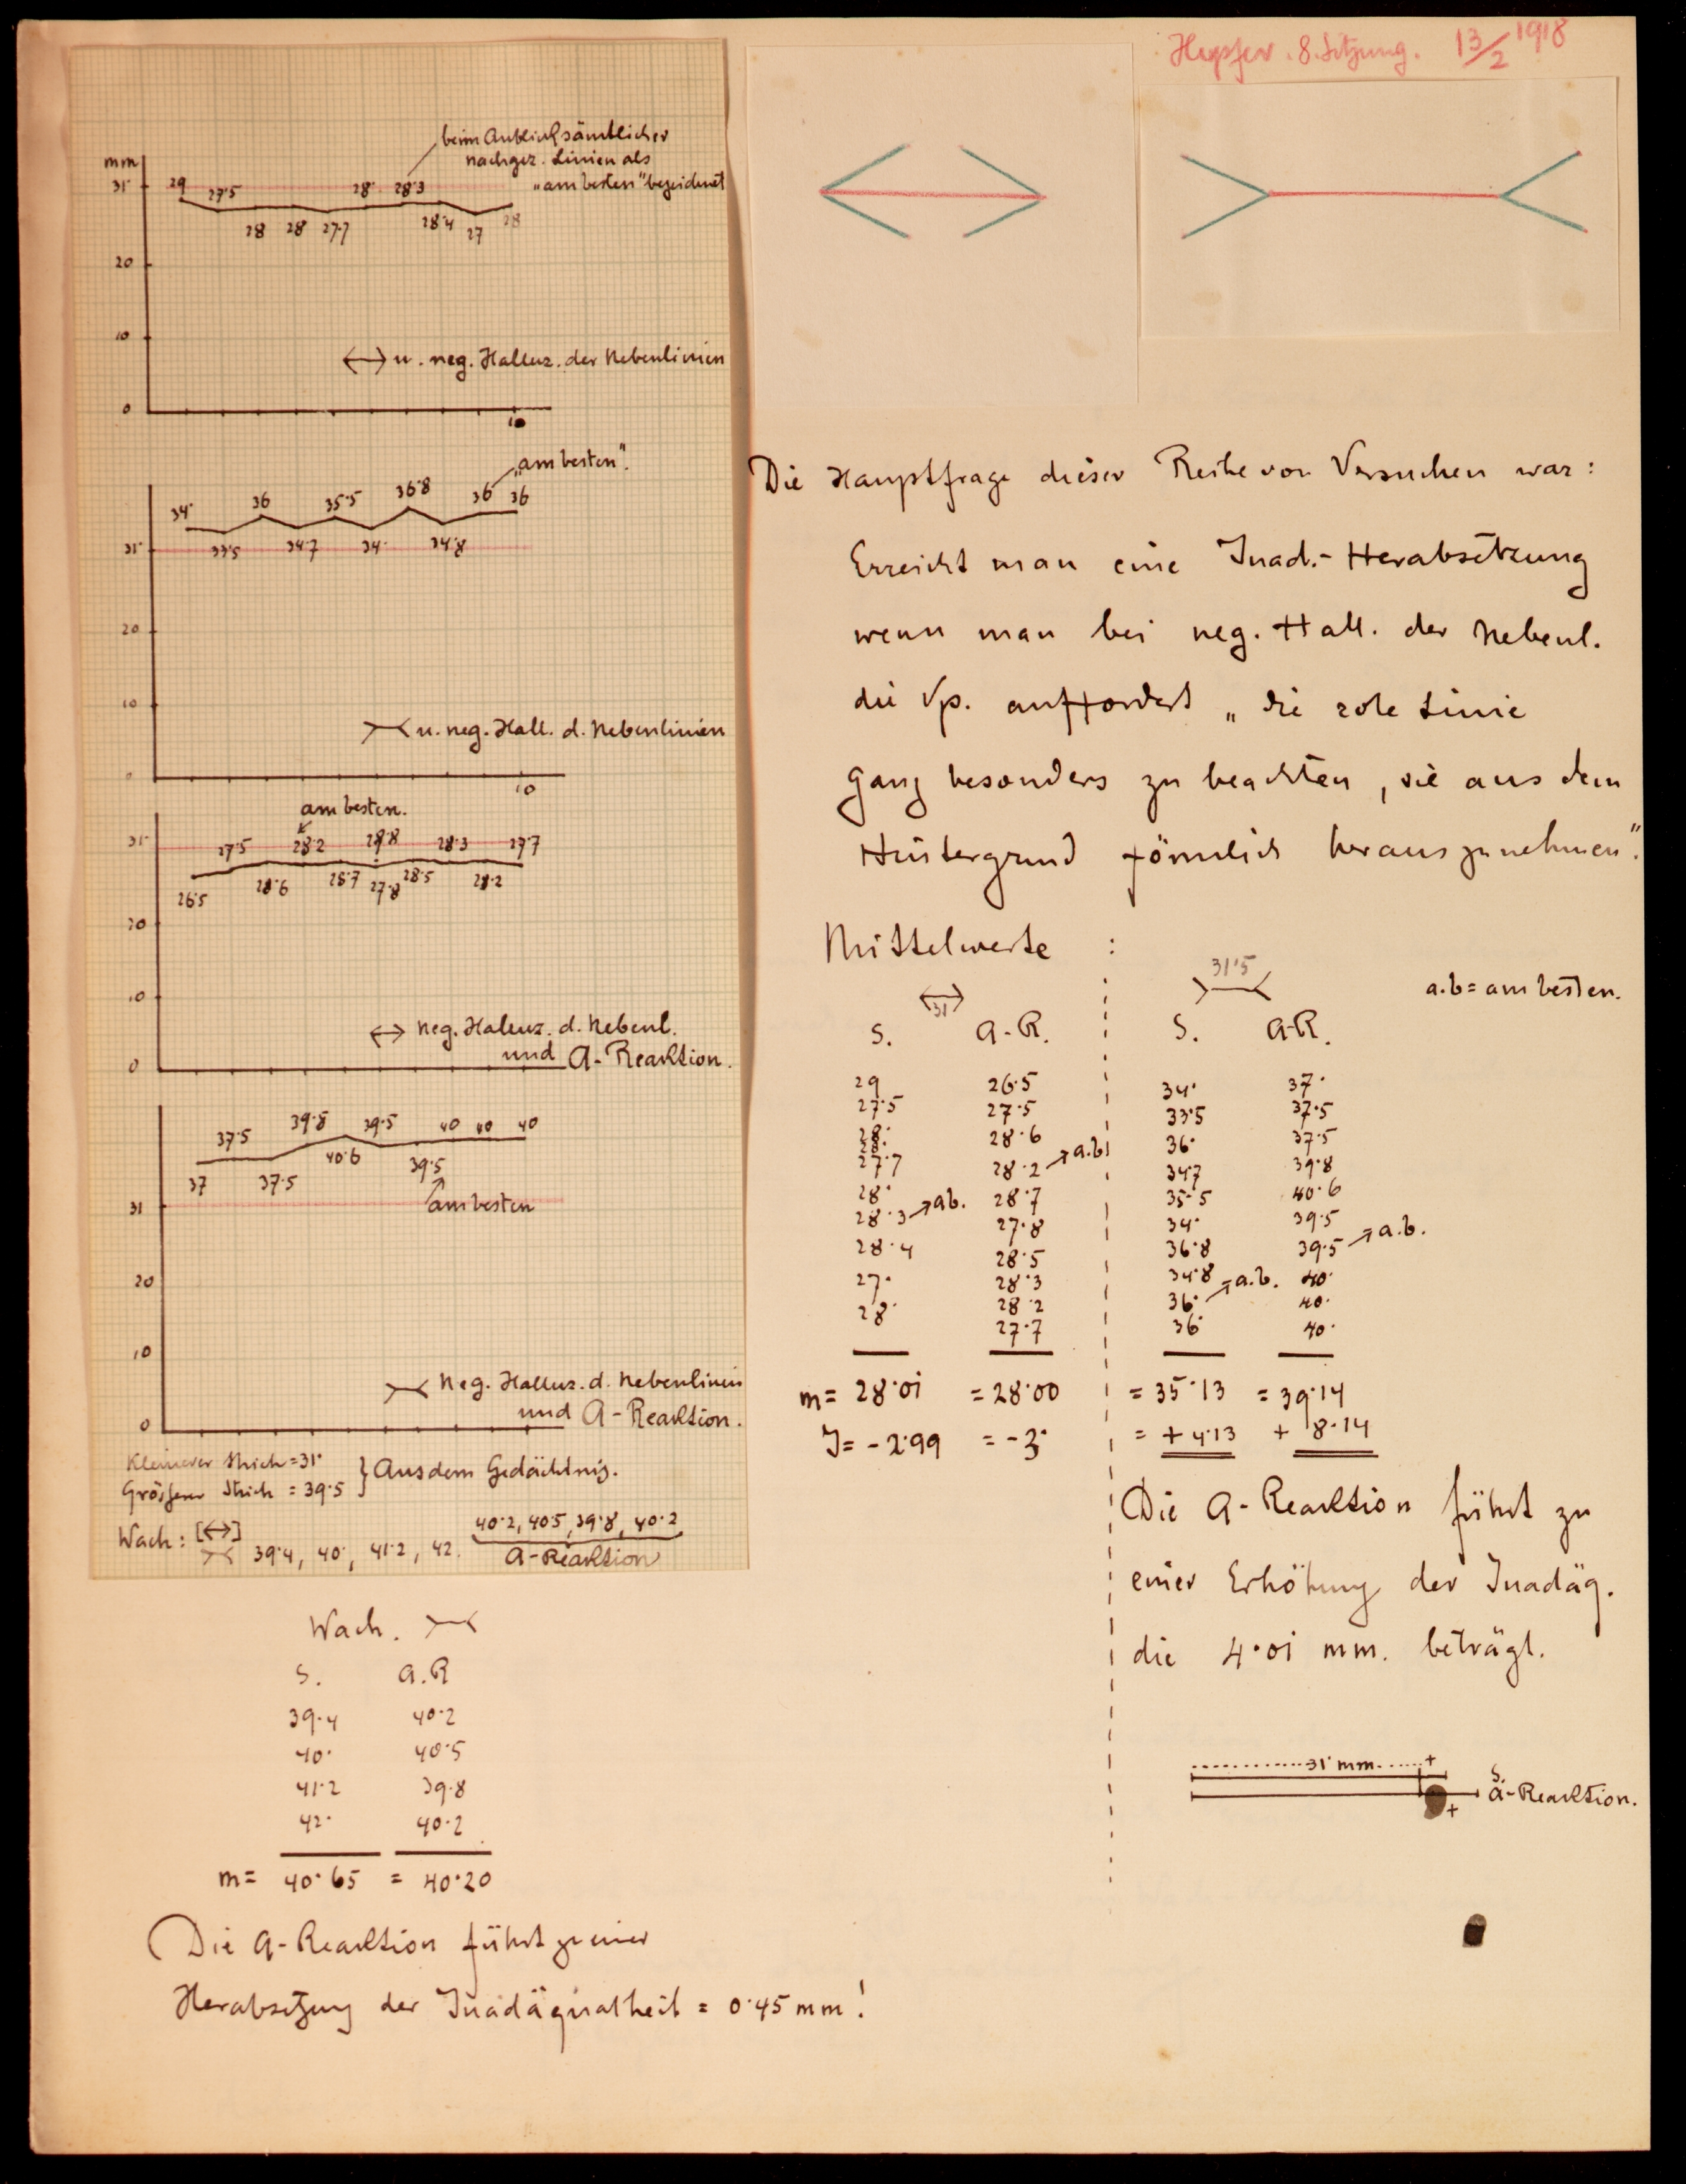 8. Sitzung. 13/2 1918
beim Anblick sämtlicher
nachgez. Linien als
„am besten" bezeichnet
mm
31·
29 27·5 28· 28·3
28 28 27·7 28·4 27 28
20
10
u. neg. Halluz. der Nebenlinien
0
10
„am besten".
34· 36 35·5 36·8 36 36
31·
33·5 34·7 34· 34·8
20
10
u. neg. Hall. d. Nebenlinien
0
10
am besten.
31·
27·5 28·2 28·8 28·3 27·7
26·5 28·6 28·7 27·8 28·5 28·2
20
10
neg. Haluz. d. Nebenl.
und A-Reaktion.
0
37·5 39·8 39·5 40 40 40
37 37·5 40·6 39·5
31
am besten
20
10
Neg. Halluz. d. Nebenlinien
und A-Reaktion.
0
Kleinerer Strich = 31·
Grösserer Strich = 39·5
} Aus dem Gedächtnis.
Wach: [↔]
39·4, 40·, 41·2, 42.
40·2, 40·5, 39·8, 40·2
A-Reaktion
Wach.
S. A.R
39·4 40·2
40· 40·5
41·2 39·8
42· 40·2
m= 40·65 = 40·20
Die A-Reaktion führt zu einer
Herabsetzung der Inadäquatheit = 0·45 mm!
Die Hauptfrage dieser Reihe von Versuchen war:
Erreicht man eine Inad.-Herabsetzung
wenn man bei neg. Hall. der Nebenl.
die Vp. auffordert „die rote Linie
ganz besonders zu beachten, sie aus dem
Hintergrund förmlich herauszunehmen".
Mittelwerte :
31 31·5 a.b = am besten.
S. A-R. S. A-R.
29 26·5 34· 37·
27·5 27·5 33·5 37·5
28· 28·6 36· 37·5
28·
27·7 28·2 → a.b 34·7 39·8
28· 28·7 35·5 40·6
28·3 → ab. 27·8 34· 39·5
28·4 28·5 36·8 39·5 → a.b.
27· 28·3 34·8 40·
28· 28·2 36· → a.b. 40·
27·7 36· 40·
m= 28·01 = 28·00 = 35·13 = 39·14
J= - 2·99 = - 3· = + 4·13 + 8·14
Die A-Reaktion führt zu
einer Erhöhung der Inadäq.
die 4·01 mm. beträgt.
31· mm. +
S.
A-Reaktion.
+